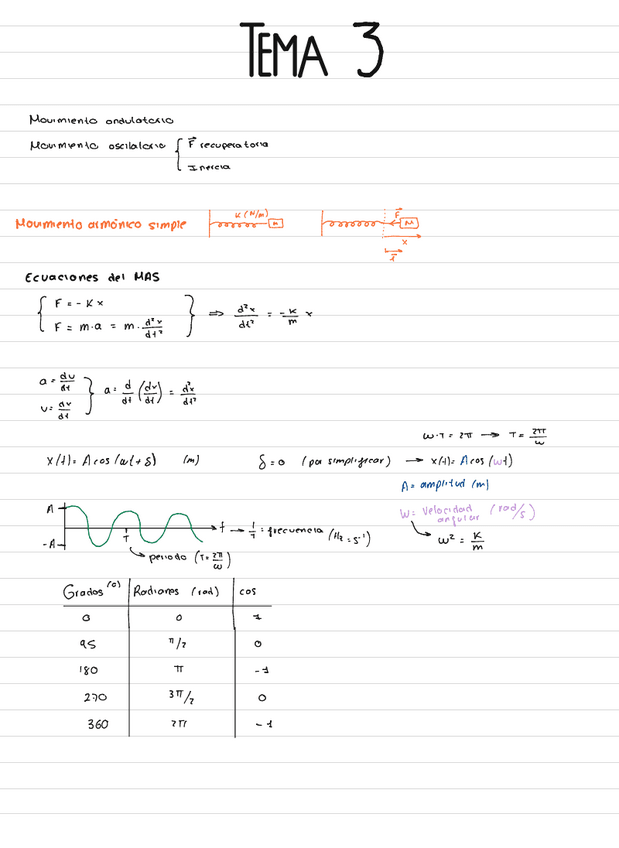 TEMA 3
Movimiento ondulatorio
Movimiento oscilatorio { F⃗ recuperatoria
Inercia
Movimiento armónico simple K (N/m) M F⃗ M
x
x⃗
Ecuaciones del MAS
F = - K x
F = m·a = m· d²x/dt² ⇒ d²x/dt² = -K/m x
a = dv/dt
v = dx/dt } a = d/dt (dx/dt) = d²x/dt²
ω·T = 2π → T = 2π/ω
x(t) = A cos (ωt + δ) (m) δ = 0 (por simplificar) → x(t) = A cos (ωt)
A = amplitud (m)
ω = velocidad angular (rad/s)
ω² = K/m
A
-A
T
t → 1/T = frecuencia (Hz = s⁻¹)
periodo (T = 2π/ω)
Grados (o) Radianes (rad) cos
0 0 1
95 π/2 0
180 π -1
270 3π/2 0
360 2π -1